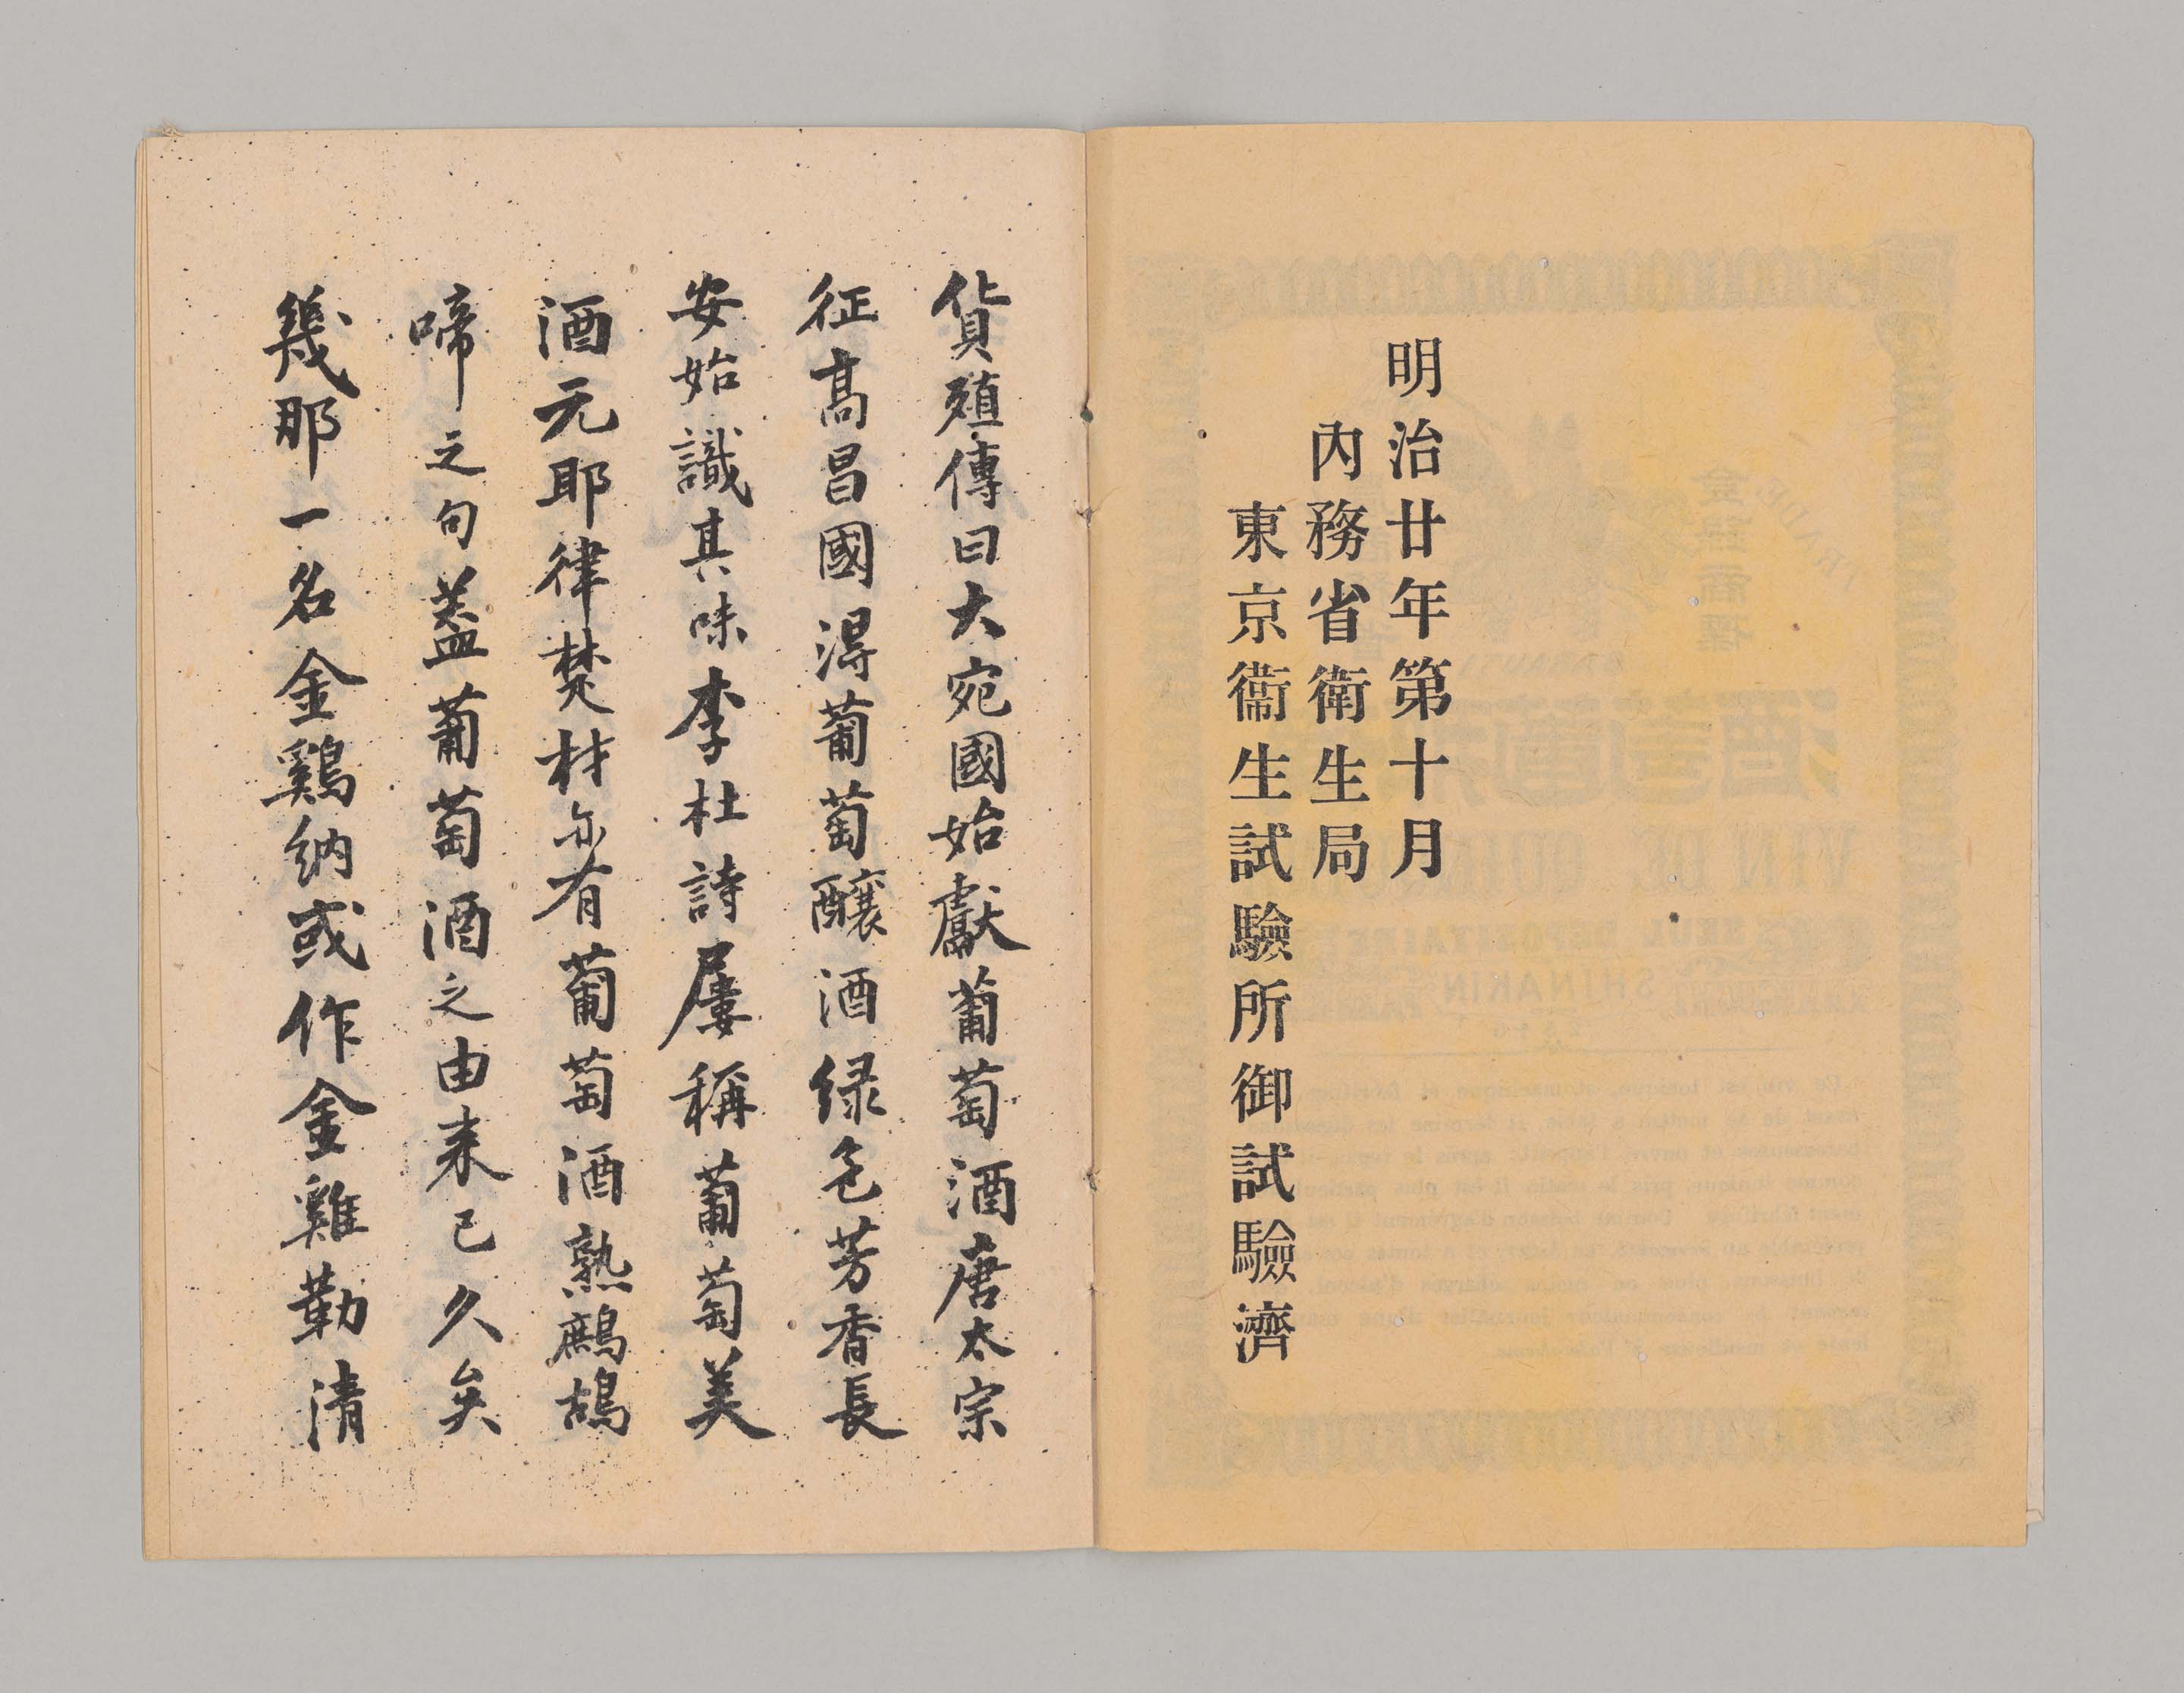 明治廿年第十月
內務省衛生局
東京衞生試驗所御試驗濟
貨殖傳曰大宛國始獻葡萄酒唐太宗
征髙昌國淂葡萄釀酒緑色芳香長
安始識其味李杜詩屢稱葡萄美
酒元耶律焚材亦有葡萄酒熟鷓鴣
啼之句葢葡萄酒之由来已久矣
幾那一名金鷄納或作金雞勒清